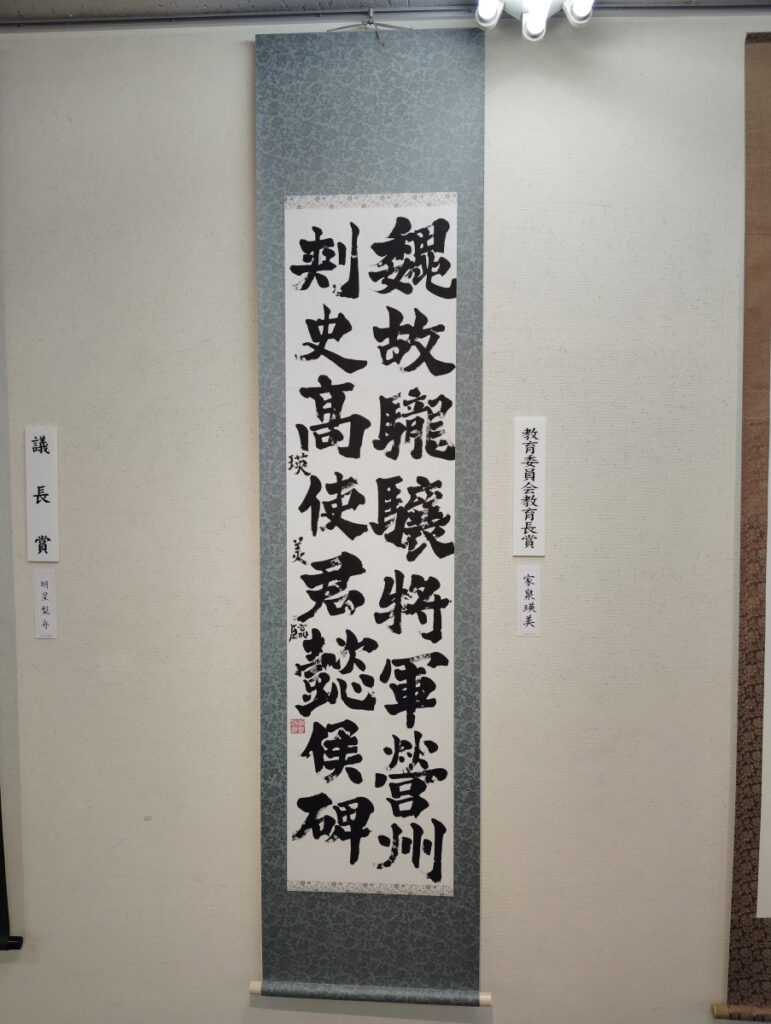 魏故䮾驤將軍營州
刺史高使君懿侯碑
瑛美臨
教育委員会教育長賞
家泉瑛美
議長賞
明星梨舟